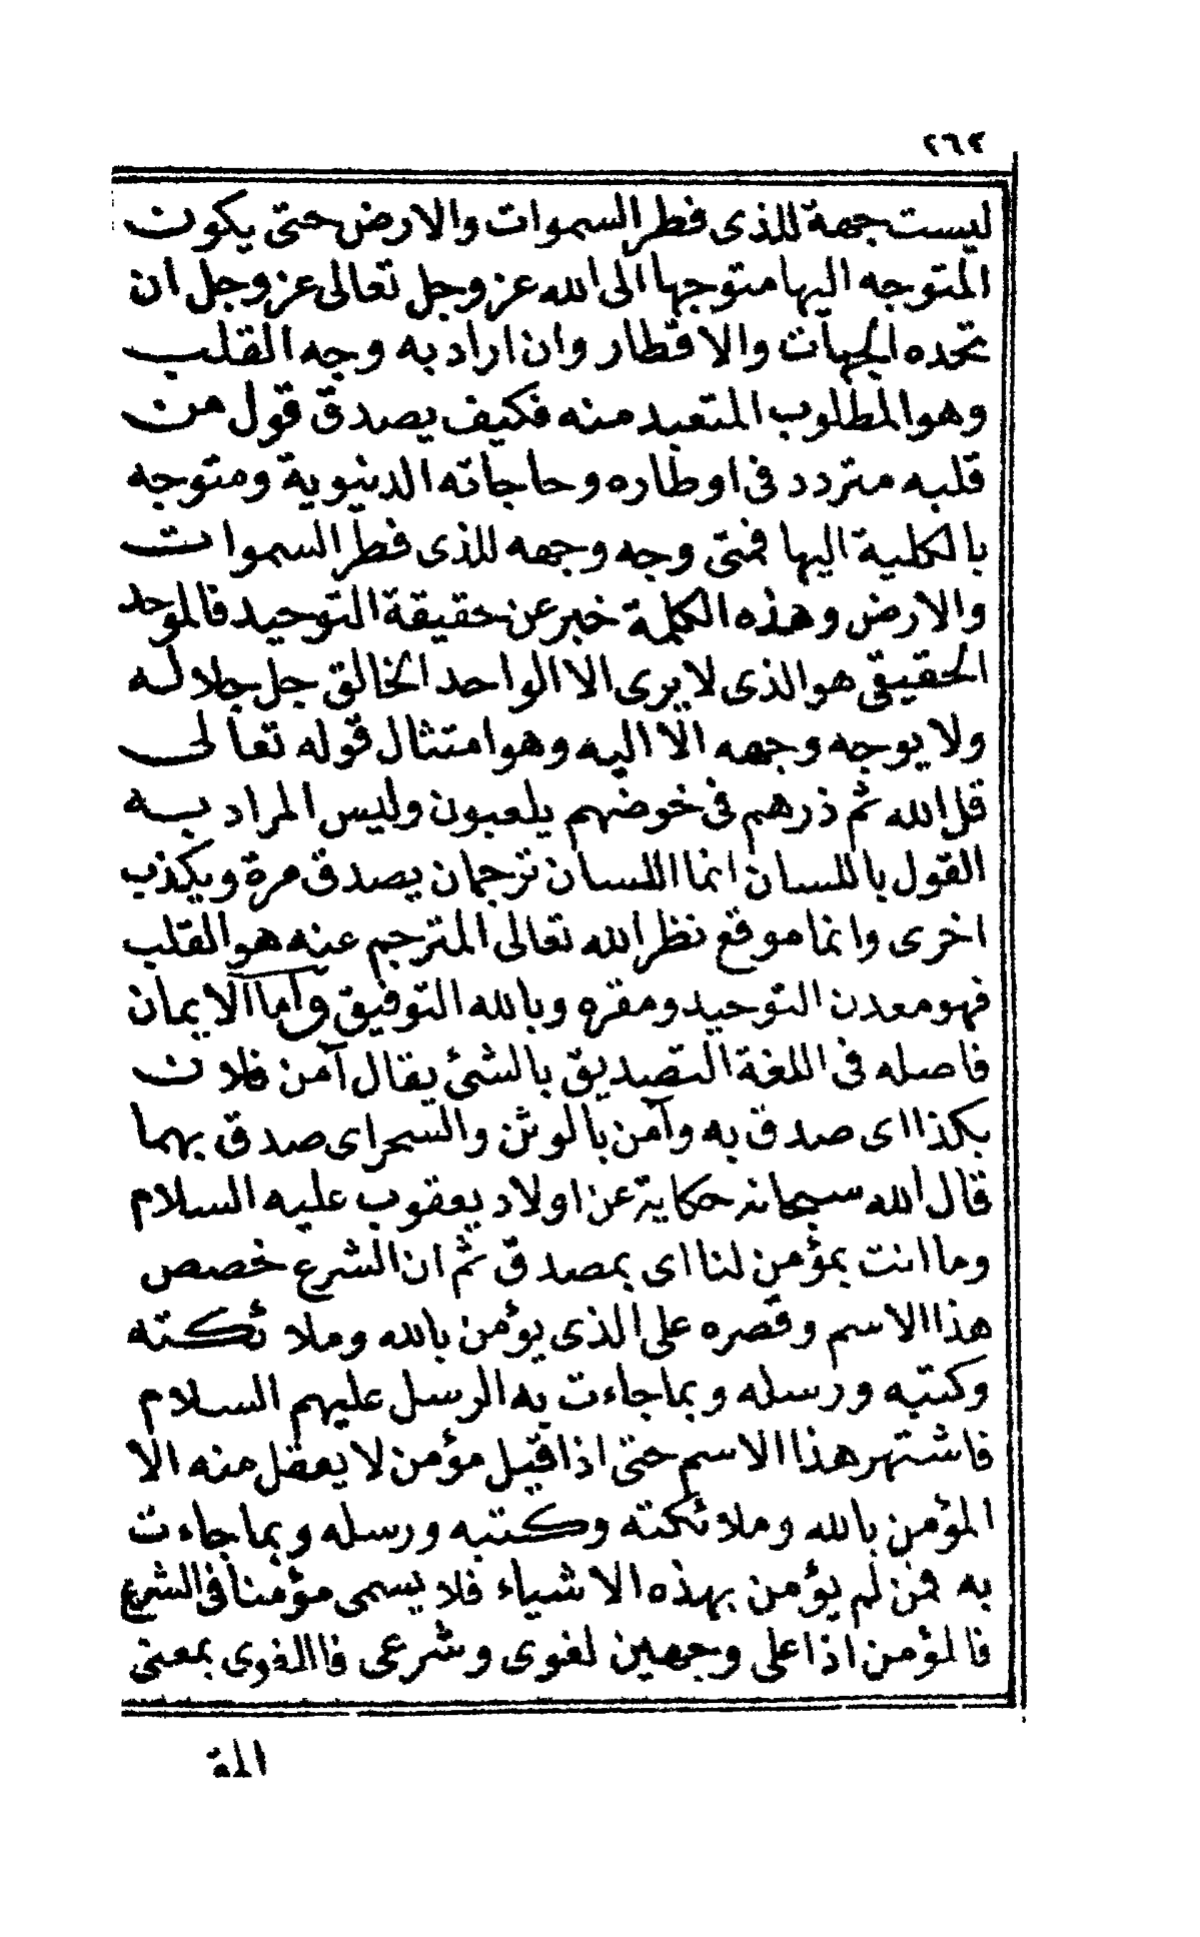 ٢٦٢
ليست جهة للذى فطر السموات والارض حتى يكون
المتوجه اليها متوجها الى الله عز وجل تعالى عز وجل ان
تحده الجهات والاقطار وان اراد به وجه القلب
وهو المطلوب المتعبد منه فكيف يصدق قول من
قلبه متردد فى اوطاره وحاجاته الدنيوية ومتوجه
بالكلية اليها فمتى وجه وجهه للذى فطر السموات
والارض وهذه الكلمة خبر عن حقيقة التوحيد فالموحد
الحقيقى هو الذى لا يرى الا الواحد الخالق جل جلاله
ولا يوجه وجهه الا اليه وهو امتثال قوله تعالى
قل الله ثم ذرهم فى خوضهم يلعبون وليس المراد به
القول باللسان انما اللسان ترجمان يصدق مرة ويكذب
اخرى وانما موقع نظر الله تعالى المترجم عنه هو القلب
فهو معدن التوحيد ومقره وبالله التوفيق واما الايمان
فاصله فى اللغة التصديق بالشئ يقال آمن فلان
بكذا اى صدق به وآمن بالوثن والسحر اى صدق بهما
قال الله سبحانه حكاية عن اولاد يعقوب عليه السلام
وما انت بمؤمن لنا اى بمصدق ثم ان الشرع خصص
هذا الاسم وقصره على الذى يؤمن بالله وملائكته
وكتبه ورسله وبما جاءت به الرسل عليهم السلام
فاشتهر هذا الاسم حتى اذا قيل مؤمن لا يعقل منه الا
المؤمن بالله وملائكته وكتبه ورسله وبما جاءت
به فمن لم يؤمن بهذه الاشياء فلا يسمى مؤمنا فى الشرع
فالمؤمن اذا على وجهين لغوى وشرعى فاللغوى بمعنى